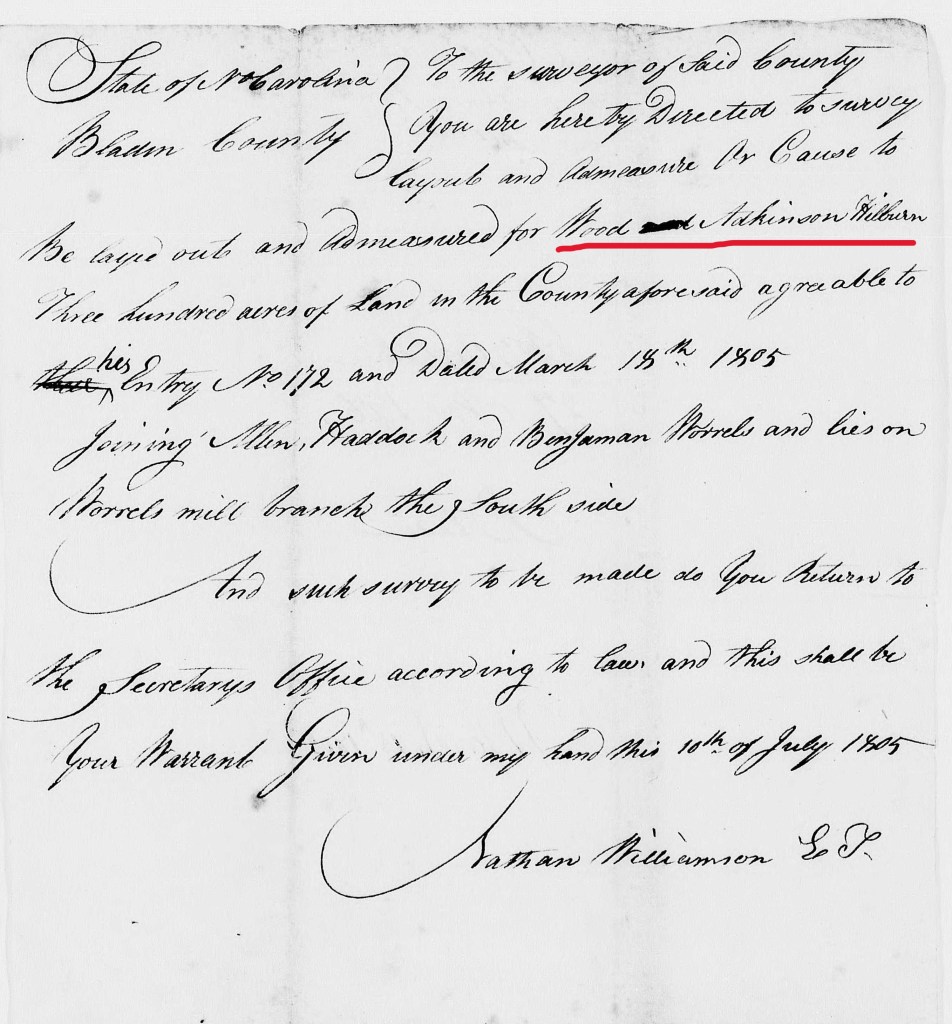 State of No Carolina } To the surveyor of Said County
Bladen County } You are hereby Directed to survey
layout and Admeasure Or Cause to
Be layed out and Admeasured for Wood and Adkinson Hilburn
Three hundred acres of Land in the County aforesaid agreeable to
their his Entry No 172 and Dated March 18th 1805
Joining Allen, Haddock and Benjaman Worrels and lies on
Worrels mill branch the South side
And such survey to be made do You Return to
the Secretarys Office according to law and this shall be
Your Warrant Given under my hand this 10th of July 1805
Nathan Williamson E T.